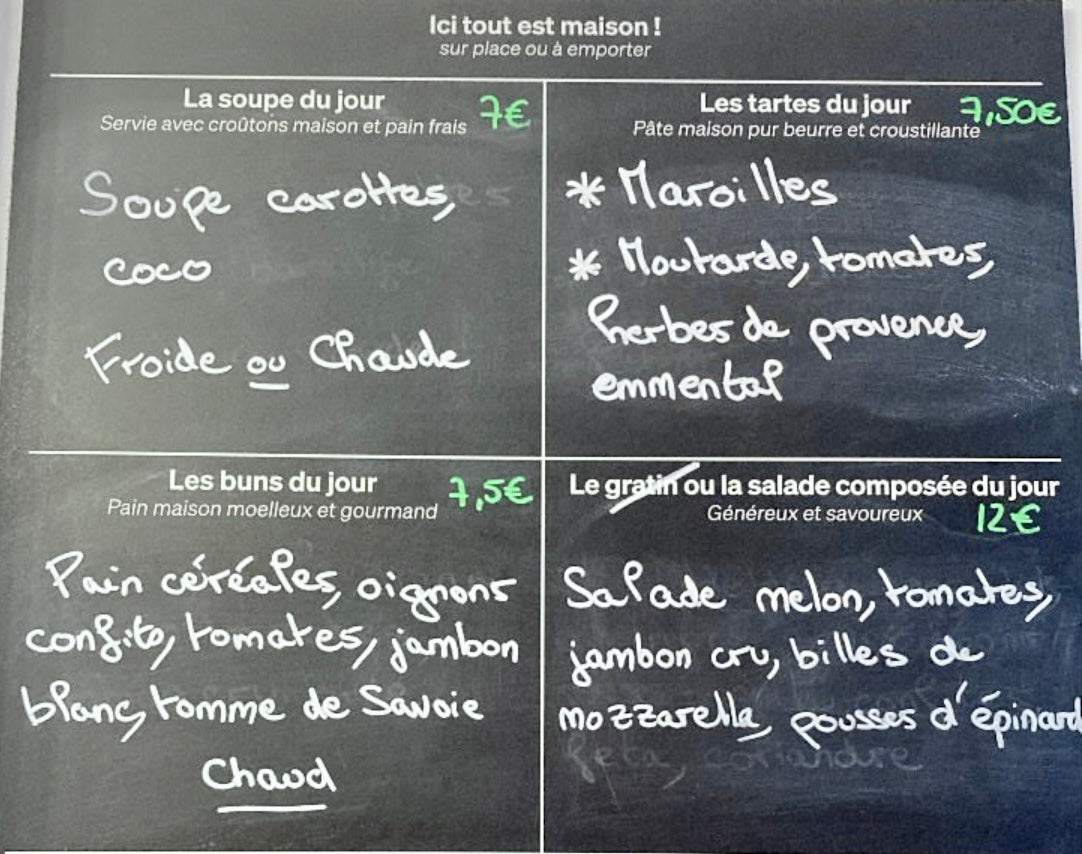 Ici tout est maison !
sur place ou à emporter
La soupe du jour 7€
Servie avec croûtons maison et pain frais
Soupe carottes,
coco
Froide ou Chaude
Les tartes du jour 7,50€
Pâte maison pur beurre et croustillante
* Maroilles
* Moutarde, tomates,
herbes de provence,
emmental
Les buns du jour 7,5€
Pain maison moelleux et gourmand
Pain céréales, oignons
confits, tomates, jambon
blanc, tomme de Savoie
Chaud
Le gratin ou la salade composée du jour
Généreux et savoureux 12€
Salade melon, tomates,
jambon cru, billes de
mozzarella, pousses d'épinard
feta, coriandre